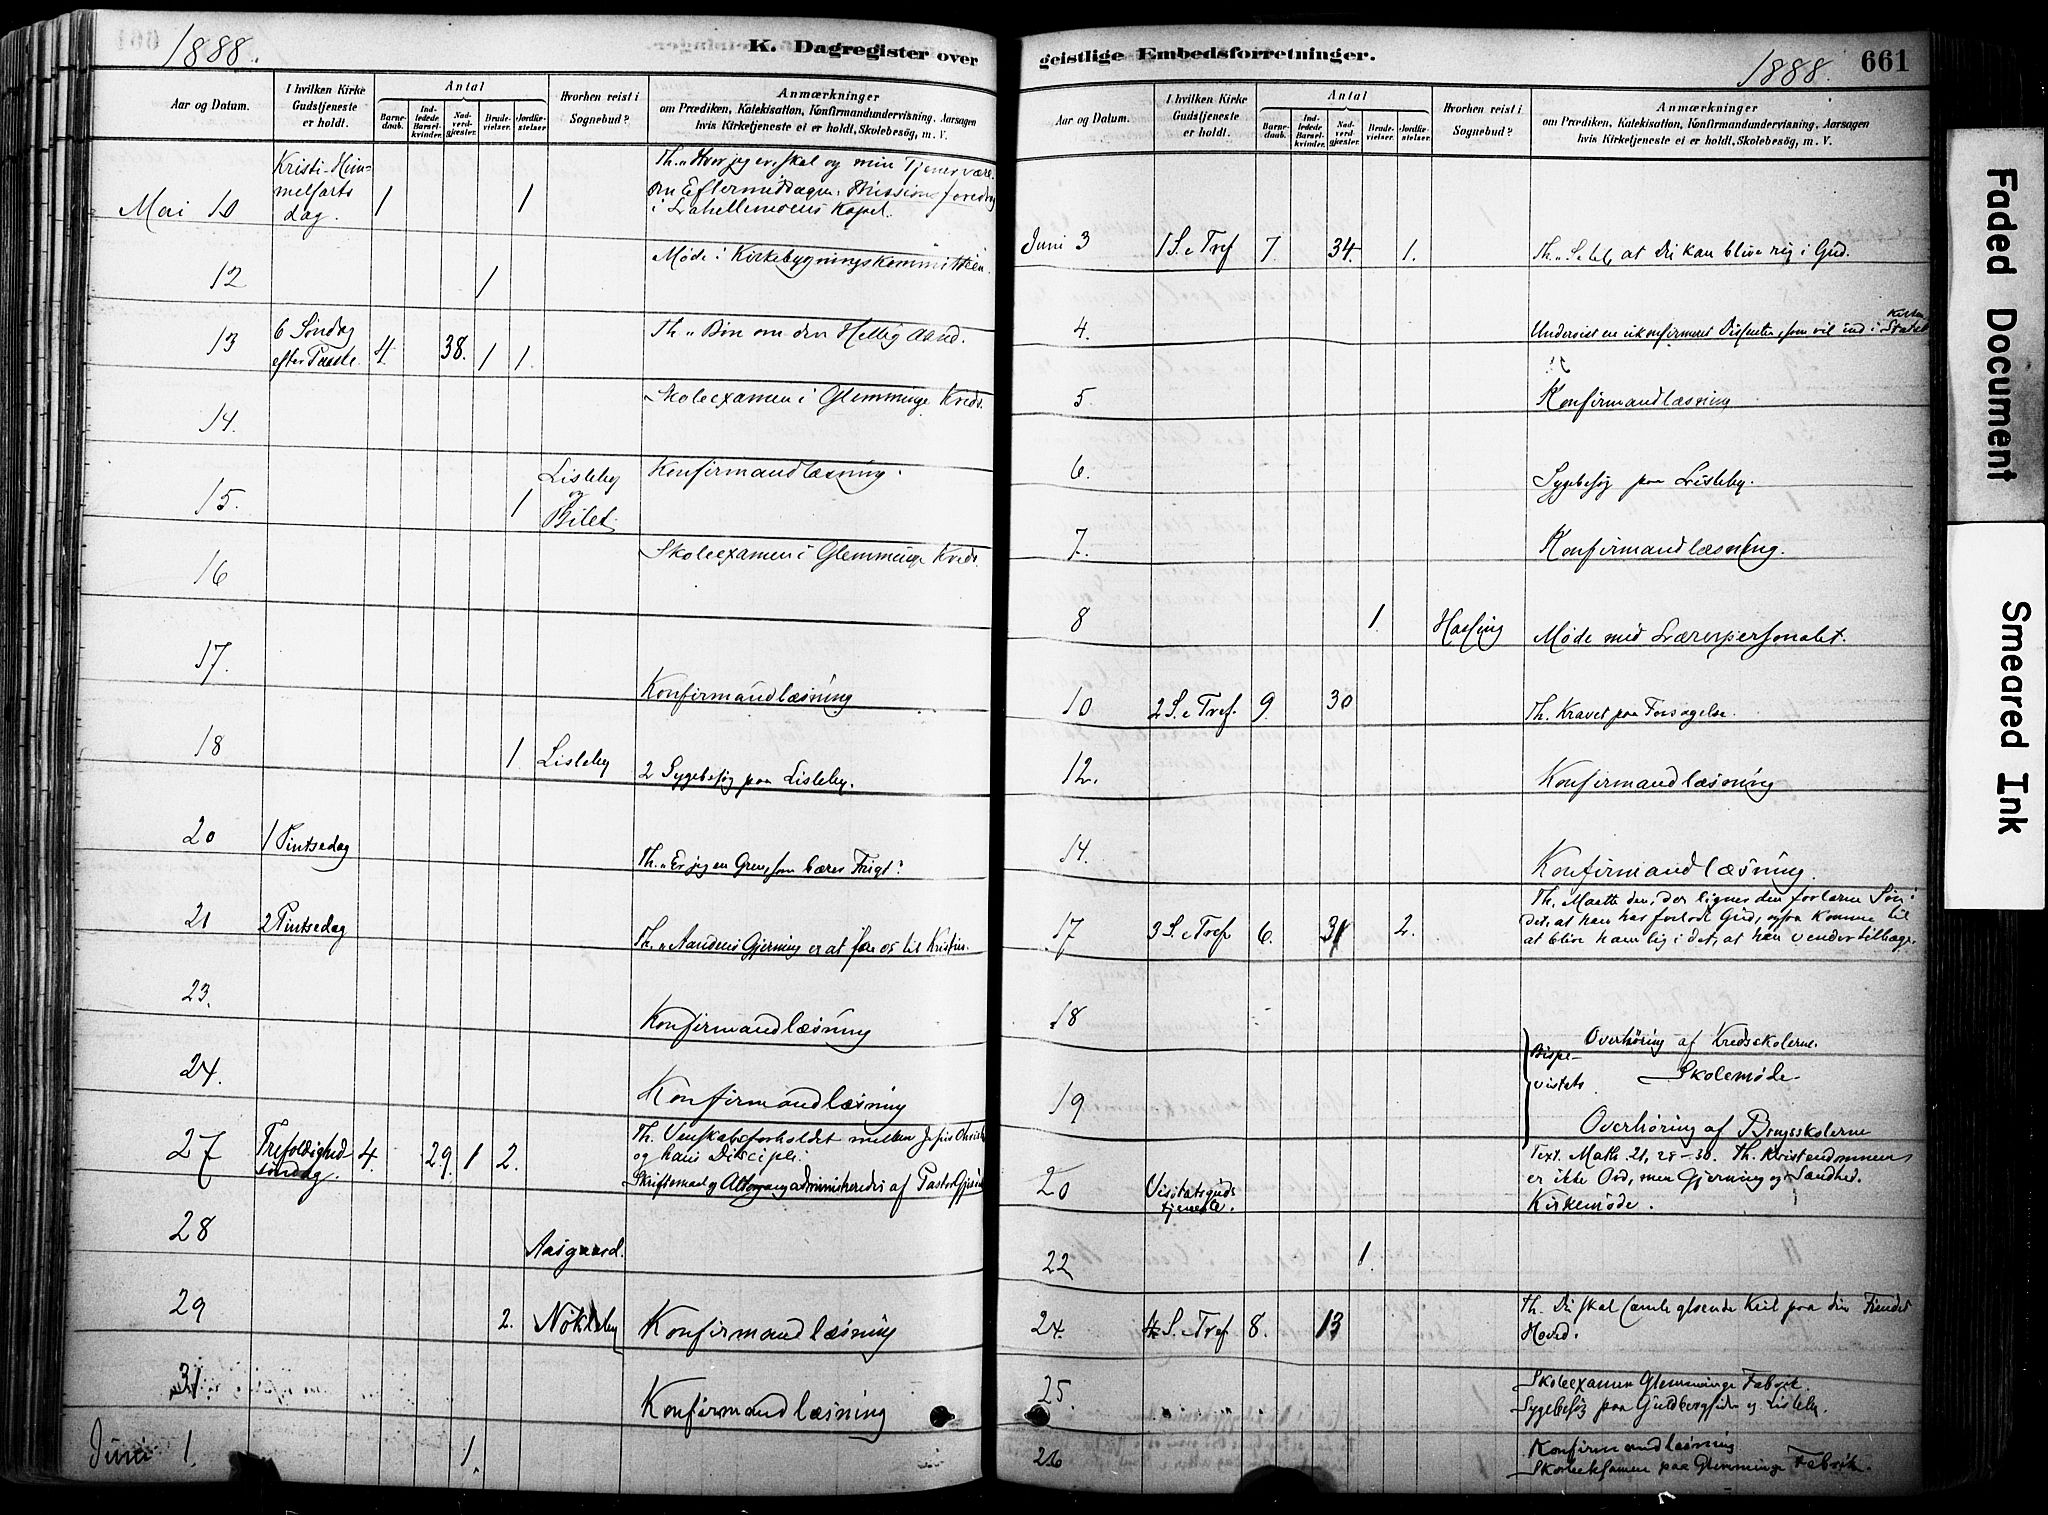 1888.
K. Dagregister over
Aar og Datum.
I hvilken Kirke Gudstjeneste er holdt.
Antal
Barnedaab.
Indledede Barselkvinder.
Nadverdgjester.
Brudevielser.
Jordfæstelser.
Hvorhen reist i Sognebud?
Anmærkninger
om Prædiken, Katekisation, Konfirmandundervisning, Aarsagen
hvis Kirketjeneste ei er holdt, Skolebesög, m. V.
Mai 10 Kristi-Himmelfartsdag. 1 1 Th. "Hvor jeg er, skal og min Tjener være.
Om Eftermiddagen Missionsforedrag
i Lahellemoens Kapel.
12 1 Møde i Kirkebygningskommitteen
13 6 Søndag efter Paaske 4. 38. 1 1. Th. "Bøn om den Hellig Aand.
14. Skoleexamen i Glemminge Kreds.
15. 1 Lisleby og Bilet. Konfirmandlæsning.
16 Skoleexamen i Glemminge Kreds.
17. Konfirmandlæsning
18 1. Lisleby 2 Sygebesøg paa Lisleby.
20 1 Pintsedag Th. "Er jeg en Gren, som bærer Frugt?
21 2 Pintsedag Th. "Aandens Gjerning er at føre os til Kristus.
23. Konfirmandlæsning
24. Konfirmandlæsning
27 Trefoldigheds søndag. 4. 29. 1 2. Th. Venskabsforholdet mellem Jesus Christus
og hans Disciple.
Skriftemaal og Altergang administreredes af Pastor
28 Aasgaard.
29 2. Nökleby Konfirmandlæsning
31. Konfirmandlæsning
Juni 1. 1.
geistlige Embedsforretninger.
1888.
661
Aar og Datum.
I hvilken Kirke Gudstjeneste er holdt.
Antal
Barnedaab.
Indledede Barselkvinder.
Nadverdgjester.
Brudevielser.
Jordfæstelser.
Hvorhen reist i Sognebud?
Anmærkninger
om Prædiken, Katekisation, Konfirmandundervisning, Aarsagen
hvis Kirketjeneste ei er holdt, Skolebesög, m. V.
Juni 3 1 S. e Tref 7. 34. 1. Th. "Se til, at Du kan blive rig i Gud.
4. Underviist en ukonfirmeret Dissenter, som vil ind i Statskirken
5. Konfirmandlæsning
6. Sygebesøg paa Lisleby.
7. Konfirmandlæsning.
8 1. Møde med Lærerpersonalet.
10 2 S. e Tref. 9. 30 Th. Kravet paa Forsagelse.
12. Konfirmandlæsning
14. Konfirmandlæsning.
17 3 S. e Tref 6. 31 2. Th. Maatte den, der ligner den forlorne Søn i
det, at han har forladt Gud, ogsaa komme til
at blive ham lig i det, at han vender tilbage.
18 Bispevisitats Overhöring af Kredsskolerne.
Skolemøde.
19 Overhöring af Brugsskolerne
20 Visitatsguds tjeneste. Text. Math. 21, 28-30. Th. Kristendommen
er ikke Ord, men Gjerning og Sandhed.
Kirkemöde.
22 1.
24. 4 S. e Tref 8. 13 Th. Du skal samle gloende Kul paa din Fiendes
Hoved.
25. Skoleexamen Glemminge Fabrik.
Sygebesøg paa og Lisleby.
26 Konfirmandlæsning
Skoleeksamen paa Glemminge Fabrik.
Faded Document
Smeared Ink